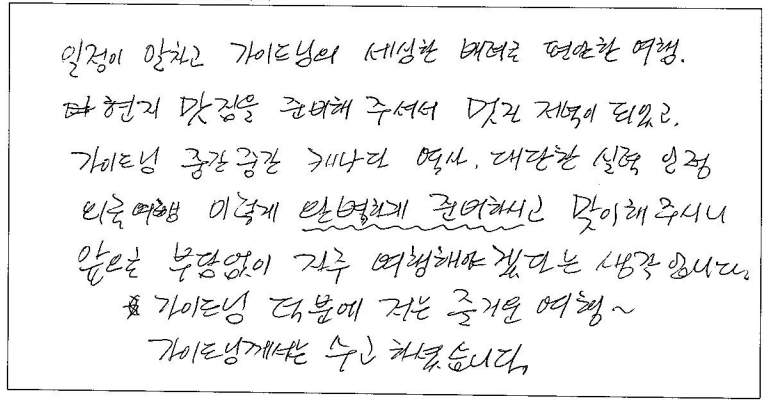 일정이 알차고 가이드님의 세심한 배려로 편안한 여행.
현지 맛집을 준비해 주셔서 멋진 저녁이 되었고,
가이드님 중간중간 캐나다 역사. 대단한 실력 인정
외국여행 이렇게 완벽하게 준비하시고 맞이해주시니
앞으로 부담없이 자주 여행해야 겠다는 생각입니다.
가이드님 덕분에 저는 즐거운 여행~
가이드님께서는 수고 하셨습니다.